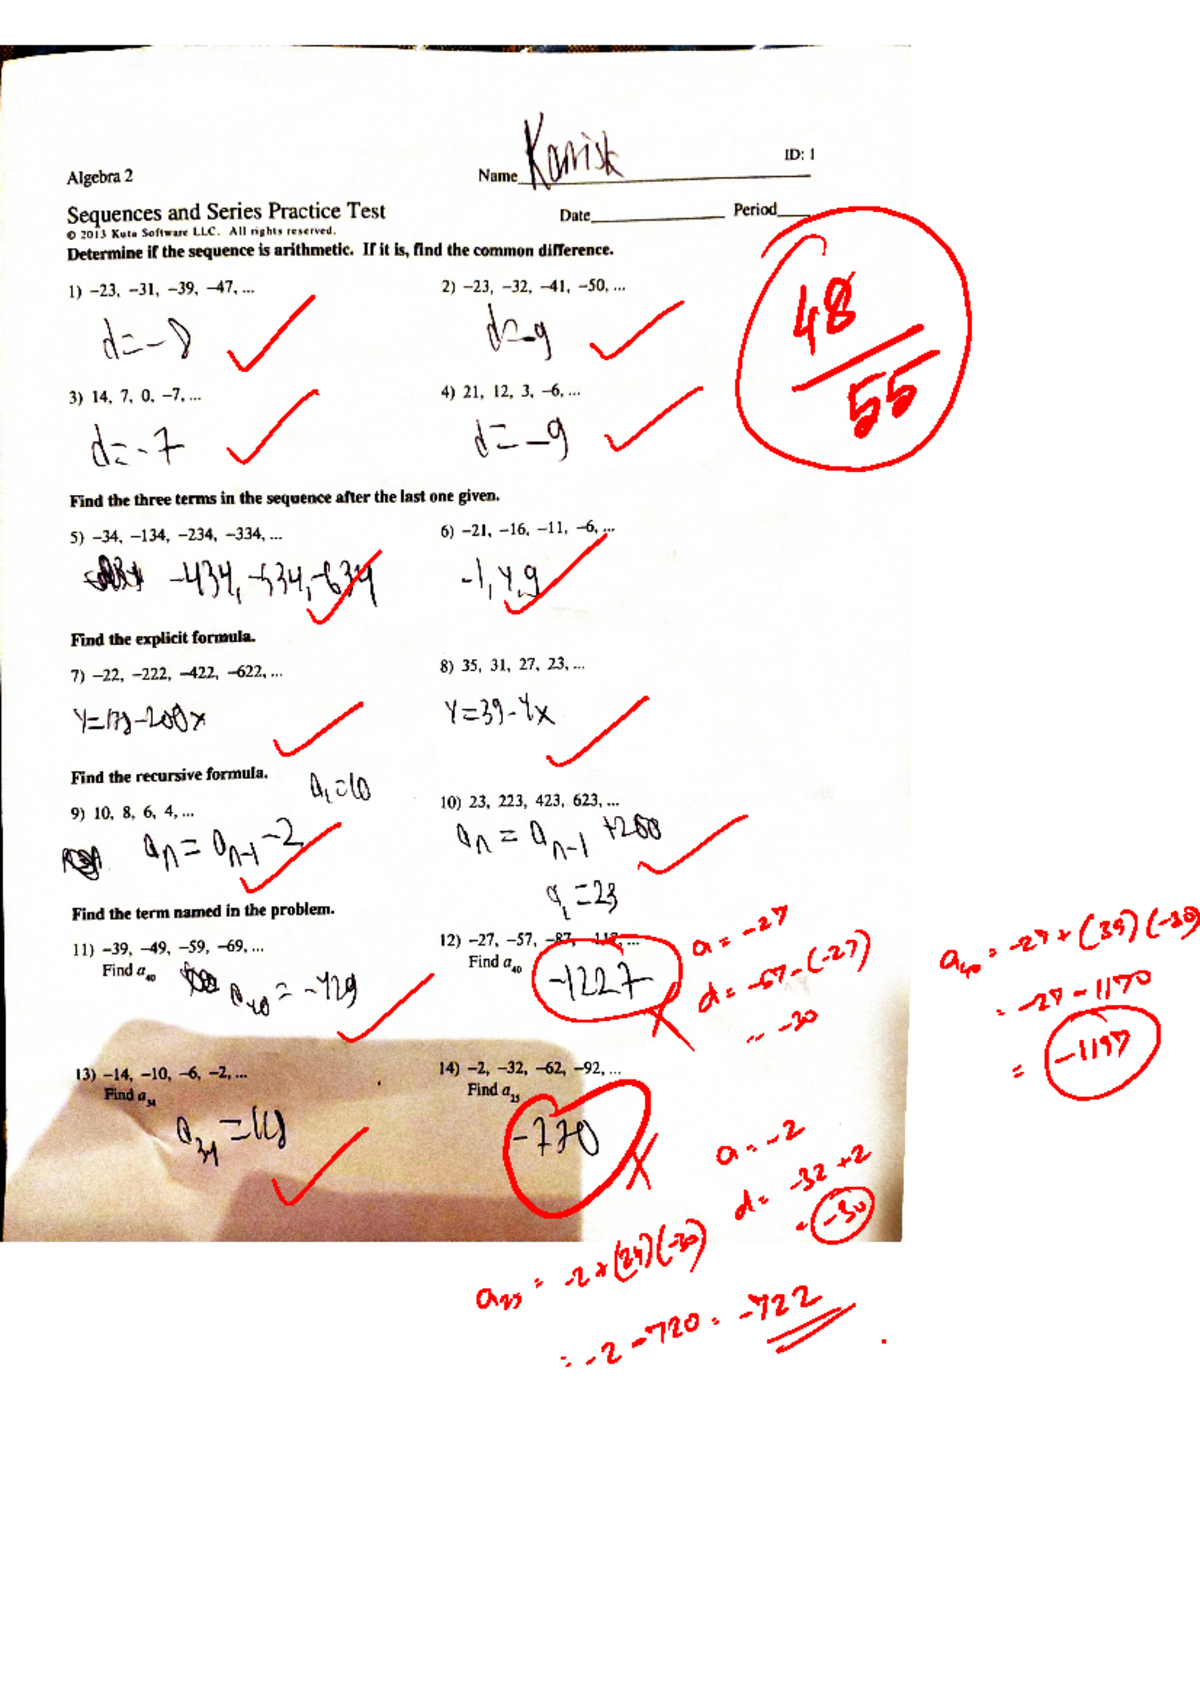 Kanisk
ID: 1
Algebra 2
Name
Sequences and Series Practice Test
Date Period
© 2013 Kuta Software LLC. All rights reserved.
Determine if the sequence is arithmetic. If it is, find the common difference.
48/55
1) −23, −31, −39, −47, ...
2) −23, −32, −41, −50, ...
d=-8
d=-9
3) 14, 7, 0, −7, ...
4) 21, 12, 3, −6, ...
d=-7
d=-9
Find the three terms in the sequence after the last one given.
5) −34, −134, −234, −334, ...
6) −21, −16, −11, −6, ...
-434, -534, -634
-1, 4, 9
Find the explicit formula.
7) −22, −222, −422, −622, ...
8) 35, 31, 27, 23, ...
Y=39-4x
Find the recursive formula.
a1=10
9) 10, 8, 6, 4, ...
10) 23, 223, 423, 623, ...
an = an-1 -2
an = an-1 +200
a1=23
Find the term named in the problem.
11) −39, −49, −59, −69, ...
12) −27, −57, −87, −117, ...
Find a40
Find a40
a40 = -429
-1227
a = -27
d = -57-(-27)
= -30
a40 = -27+(39)(-30)
= -27-1170
= -1197
13) −14, −10, −6, −2, ...
14) −2, −32, −62, −92, ...
Find a34
Find a25
a34 = 118
-770
a = -2
d = -32+2
= -30
a25 = -2+(24)(-30)
= -2-720 = -722